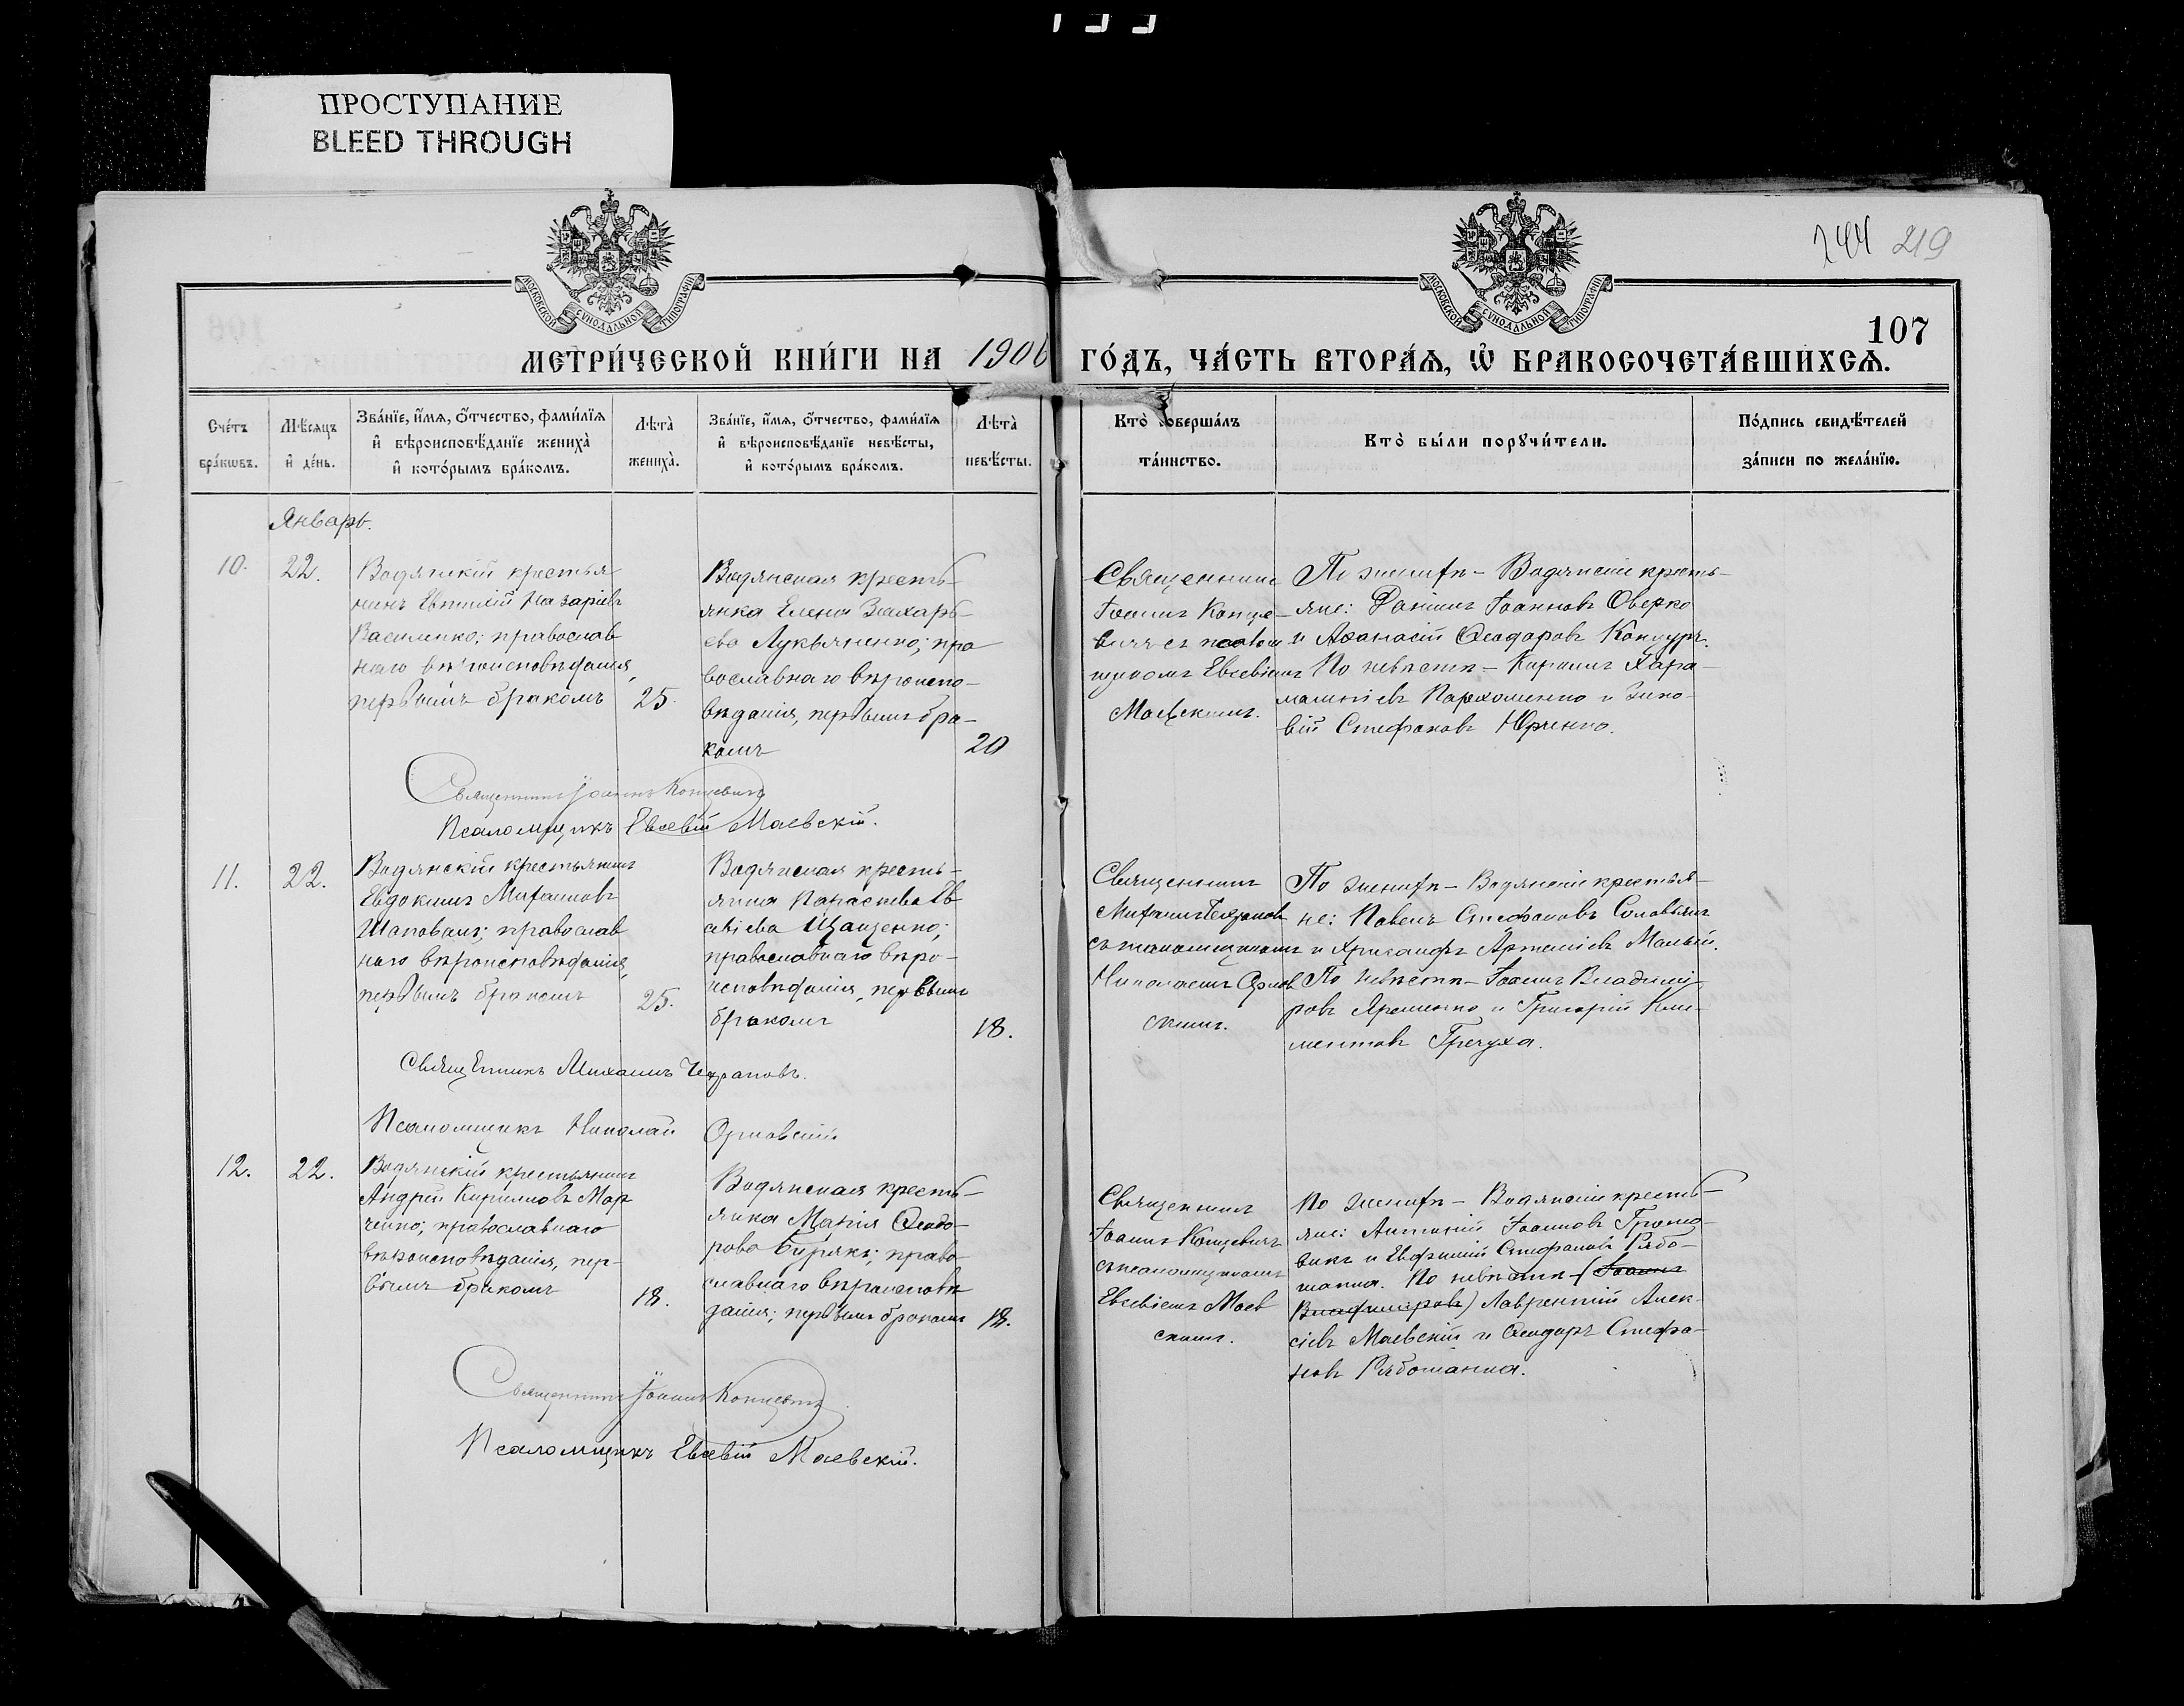 ПРОСТУПАНИЕ
BLEED THROUGH
МОСКОВСКОЙ СУНОДАЛЬНОЙ ТИПОГРАФІИ
МОСКОВСКОЙ СУНОДАЛЬНОЙ ТИПОГРАФІИ
244 219
107
МЕТРИ́ЧЕСКОЙ КНИ́ГИ НА 1906 ГО́ДЪ, ЧА́СТЬ ВТОРА́Ѧ, Ѡ҆ БРАКОСОЧЕТА́ВШИХСѦ.
Сче́тъ бра́кѡвъ.
Мѣ́сяцъ и҆ де́нь.
Зва́нїе, и҆́мѧ, ѻ҆́тчество, фами́лїѧ
и҆ вѣроисповѣ́данїе жениха̀
и҆ кото́рымъ бра́комъ.
Лѣта̀ жениха̀.
Зва́нїе, и҆́мѧ, ѻ҆́тчество, фами́лїѧ
и҆ вѣроисповѣ́данїе невѣ́сты,
и҆ кото́рымъ бра́комъ.
Лѣта̀ невѣ́сты.
Кто̀ соверша́лъ
та́инство.
Кто̀ бы́ли порꙋчи́тели.
По́дпись свидѣ́телей
за́писи по жела́нїю.
Январь.
10. 22.
Водянскій крестья
нинъ Евтихій Назаріевъ
Василенко; православ
наго вѣроисповѣданія,
первымъ бракомъ 25.
Водянская кресть-
янка Елена Захарь-
ева Лукьяненко; пра
вославнаго вѣроиспо-
вѣданія, первымъ бра-
комъ 20
Священникъ
Іоаннъ Конце-
вичъ съ псалом
щикомъ Евсевіемъ
Маевскимъ.
По женихѣ - Водянскіе кресть-
яне: Даніилъ Іоанновъ Оверко
и Аѳанасій Ѳеодоровъ Кандуръ.
По невѣстѣ - Кириллъ Хара-
лампіевъ Пархоменко и Зино-
вій Стефановъ Юрченко.
Священникъ Іоаннъ Концевичъ
Псаломщикъ Евсевій Маевскій.
11. 22.
Водянскій крестьянинъ
Евдокимъ Михаиловъ
Шаповалъ; православ
наго вѣроисповѣданія,
первымъ бракомъ 25.
Водянская кресть-
янка Параскева Ев
Ищенко;
православнаго вѣро-
исповѣданія, первымъ
бракомъ 18.
Священникъ
Михаилъ
съ псаломщикомъ
Николаемъ Орлов
скимъ.
По женихѣ - Водянскіе крестья-
не: Павелъ Стефановъ Соловьянъ
и Хрисанфъ Артеміевъ Малый.
По невѣстѣ - Іоаннъ Владими-
ровъ Яременко и Григорій Кли-
ментовъ Гречуха.
Священникъ Михаилъ
Псаломщикъ Николай Орловскій
12. 22.
Водянскій крестьянинъ
Андрей Кирилловъ Мар
ченко; православнаго
вѣроисповѣданія, пер-
вымъ бракомъ 18.
Водянская кресть-
янка Марія Ѳеодо-
рова Бирякъ; право
славнаго вѣроисповѣ
данія; первымъ бракомъ 18.
Священникъ
Іоаннъ Концевичъ
съ псаломщикомъ
Евсевіемъ Маев
скимъ.
По женихѣ - Водянскіе кресть-
яне: Антоній Іоанновъ Громо-
викъ и Евфимій Стефановъ Рябо-
шапка. По невѣстѣ - (Іоаннъ
Владиміровъ) Лаврентій Алек-
сіевъ Маевскій и Ѳеодоръ Стефа-
новъ Рябошапка.
Священникъ Іоаннъ Концевичъ
Псаломщикъ Евсевій Маевскій.